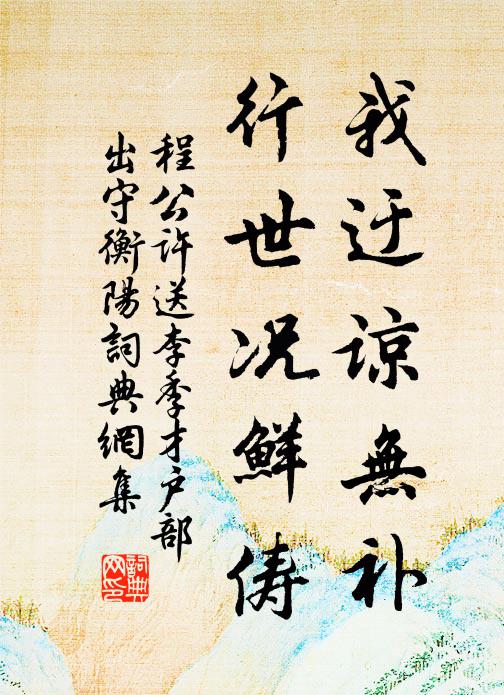 我迂谅無补
行世况鮮俦
程公许送李季才户部
出守衡陽詞典網集
詞典
网印